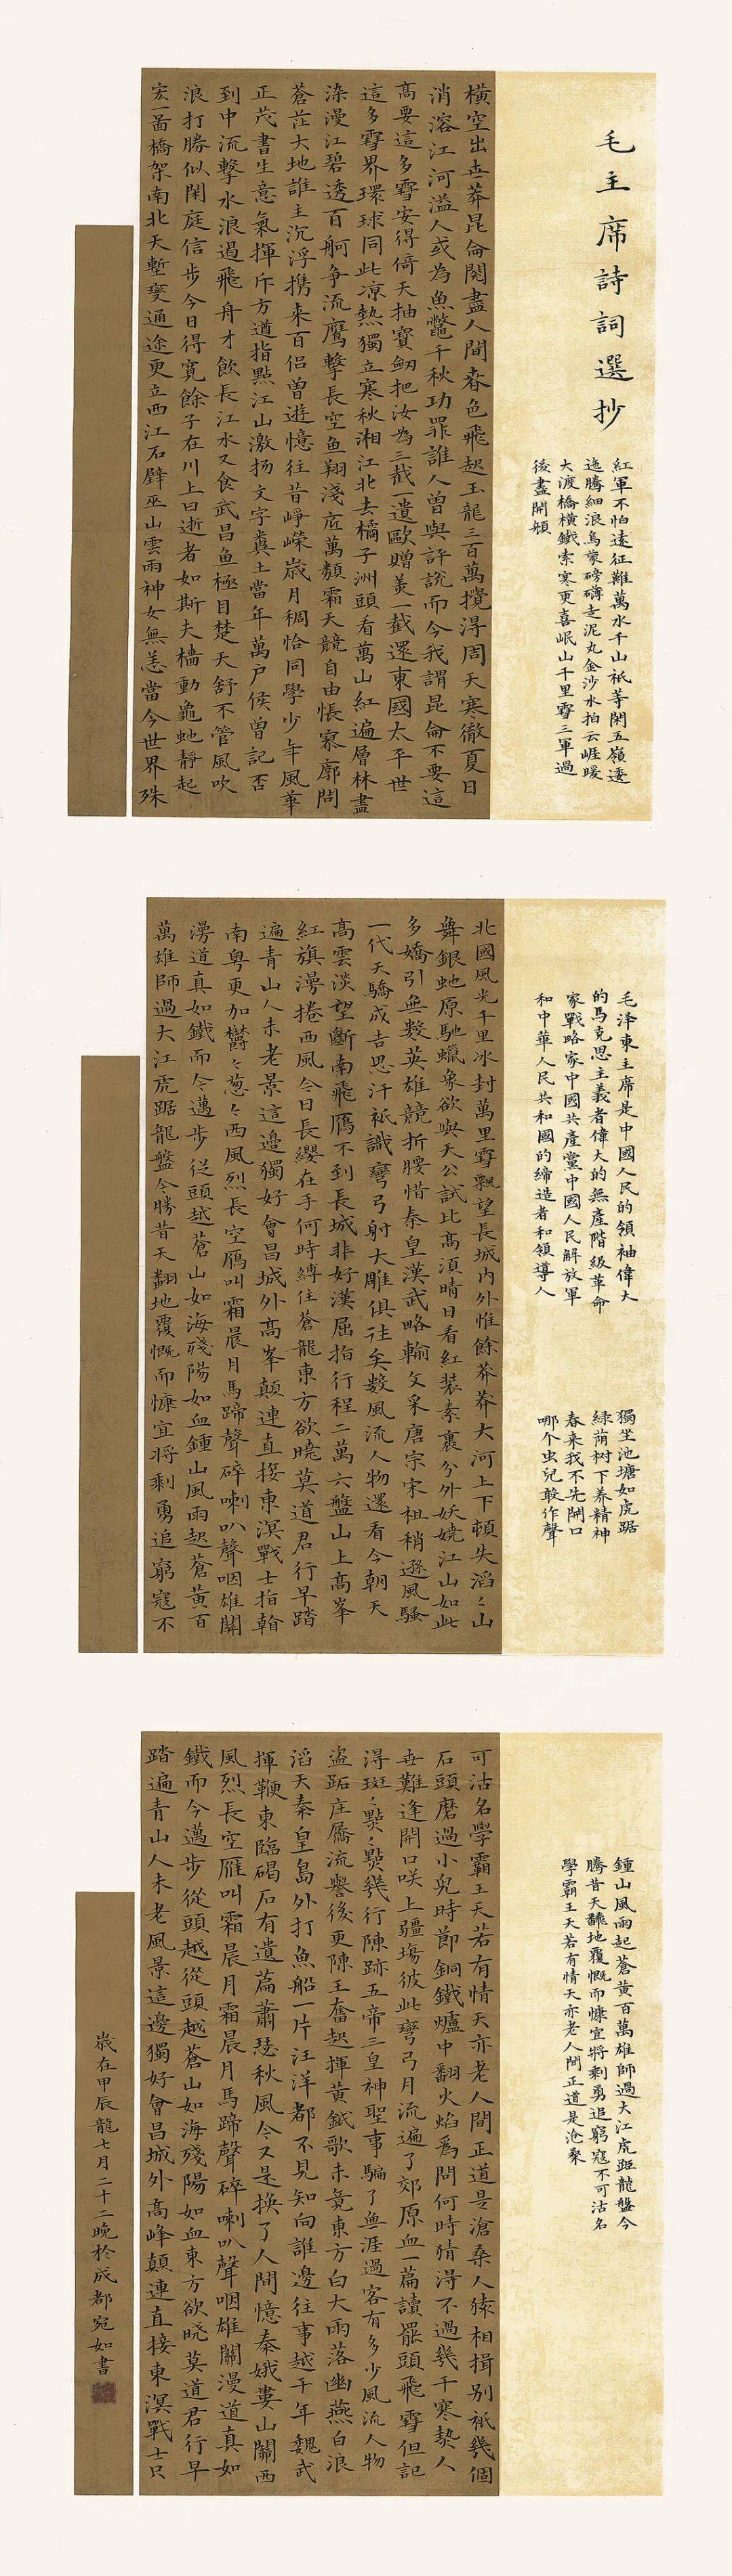 毛主席詩詞選抄
紅軍不怕遠征難萬水千山祇等閑五嶺逶
迤騰細浪烏蒙磅礴走泥丸金沙水拍云崖暖
大渡橋橫鐵索寒更喜岷山千里雪三軍過
後盡開顏
橫空出世莽昆侖閱盡人間春色飛起玉龍三百萬攪得周天寒徹夏日
消溶江河溢人或為魚鱉千秋功罪誰人曾與評說而今我謂昆侖不要這
高要這多雪安得倚天抽寶劍把汝為三截一遺歐贈美一截還東國太平世
這多雪界環球同此凉熱獨立寒秋湘江北去橘子洲頭看萬山紅遍層林盡
染漫江碧透百舸争流鹰擊長空鱼翔淺底萬類霜天競自由悵寥廓問
蒼茫大地誰主沉浮携来百侣曾遊憶往昔崢嶸歲月稠恰同學少年風華
正茂書生意氣揮斥方遒指點江山激扬文字糞土當年萬户侯曾記否
到中流擊水浪遏飛舟才飲長江水又食武昌鱼極目楚天舒不管風吹
浪打勝似閑庭信步今日得寬餘子在川上曰逝者如斯夫檣動龜虵靜起
宏圖橋架南北天塹變通途更立西江石壁巫山雲雨神女無恙當今世界殊
毛泽東主席是中國人民的領袖偉大
的馬克思主義者偉大的無產階級革命
家戰略家中國共產黨中國人民解放軍
和中華人民共和國的締造者和領導人
獨坐池塘如虎踞
緑荫树下养精神
春来我不先開口
哪个虫兒敢作聲
北國風光千里冰封萬里雪飄望長城内外惟餘莽莽大河上下頓失滔々山
舞銀虵原馳蠟象欲與天公試比高須晴日看紅装素裹分外妖嬈江山如此
多嬌引無數英雄競折腰惜秦皇漢武略輸文采唐宗宋祖稍遜風騷
一代天驕成吉思汗祇識彎弓射大雕俱往矣數風流人物還看今朝天
高雲淡望斷南飛鴈不到長城非好漢屈指行程二萬六盤山上高峯
紅旗漫捲西風今日長纓在手何時縛住蒼龍東方欲曉莫道君行早踏
遍青山人未老景這邊獨好會昌城外高峯顛連直接東溟戰士指翰
南粤更加鬱々葱々西風烈長空鴈叫霜晨月馬蹄聲碎喇叭聲咽雄關
漫道真如鐵而今邁步從頭越蒼山如海殘陽如血鍾山風雨起蒼黄百
萬雄師過大江虎踞龍盤今勝昔天翻地覆慨而慷宜将剩勇追窮寇不
鍾山風雨起蒼黄百萬雄師過大江虎踞龍盤今
勝昔天翻地覆慨而慷宜將剩勇追窮寇不可沽名
學霸王天若有情天亦老人間正道是沧桑
可沽名學霸王天若有情天亦老人間正道是滄桑人猿相揖别祇幾個
石頭磨過小兒時節銅鐵爐中翻火焰爲問何時猜得不過幾千寒熱人
世難逢開口咲上疆場彼此彎弓月流遍了郊原血一篇讀罷頭飛雪但記
得斑々點々幾行陳跡五帝三皇神聖事騙了無涯過客有多少風流人物
盗跖庄屩流譽後更陳王奮起揮黄鉞歌未竟東方白大雨落幽燕白浪
滔天秦皇島外打魚船一片汪洋都不見知向誰邊往事越千年魏武
揮鞭東臨碣石有遺篇蕭瑟秋風今又是换了人間憶秦娥婁山關西
風烈長空雁叫霜晨月霜晨月馬蹄聲碎喇叭聲咽雄關漫道真如
鐵而今邁步從頭越從頭越蒼山如海殘陽如血東方欲曉莫道君行早
踏遍青山人未老風景這邊獨好會昌城外高峰顛連直接東溟戰士只
歲在甲辰龍七月二十二晚於成都宛如書